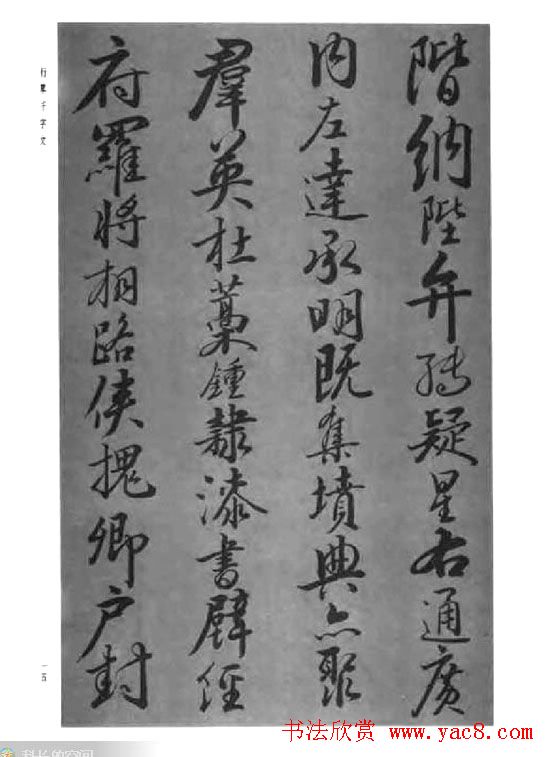 行草千字文
階納陛弁轉疑星右通廣
内左達承明既集墳典亦聚
羣英杜藁鍾隸漆書壁經
府羅將相路俠槐卿户封
一五
书法欣赏 www.yac8.com
科长的空间